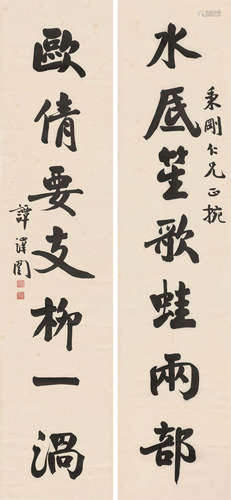 水底笙歌蛙兩部
秉剛仁兄正捥
歐倩要支柳一渦
譚澤闓